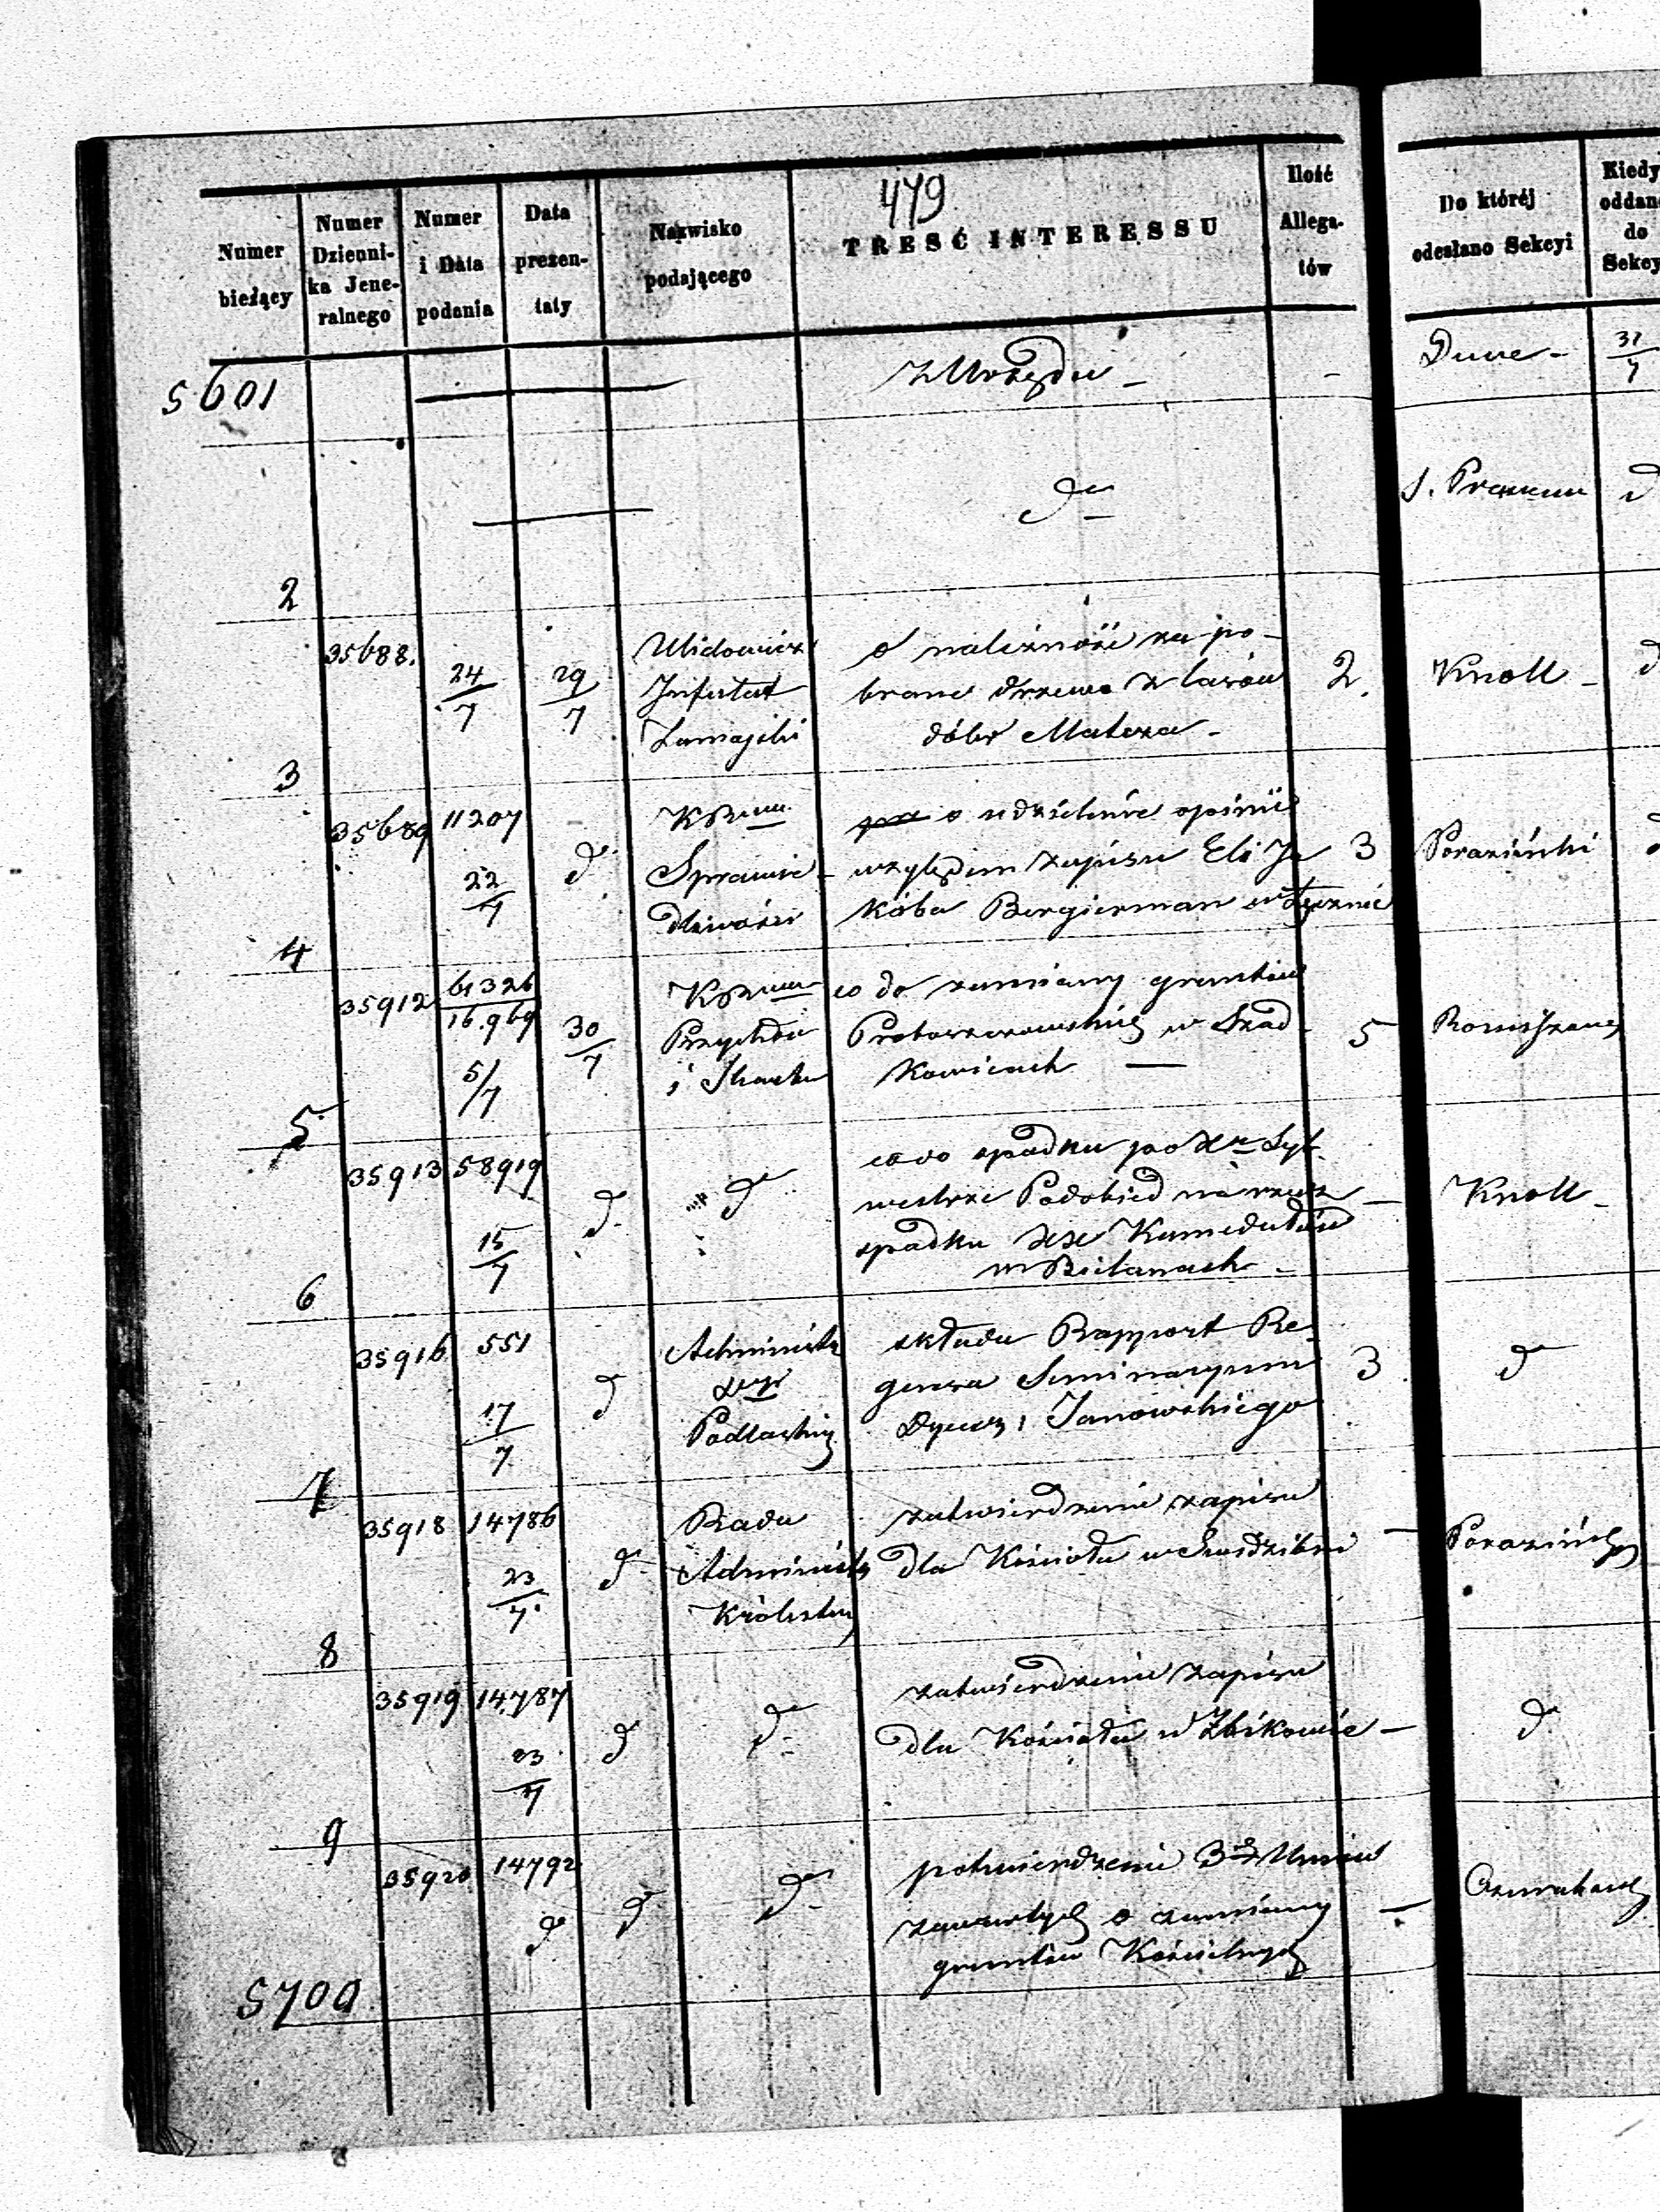 479
Numer bieżący
Numer Dzienni- ka Jene- ralnego
Numer i Data podania
Data prezen- taty
Nazwisko podającego
TREŚĆ INTERESSU
Ilość Allega- tów
Do któréj odesłano Sekcyi
Kiedy oddan do Sekcy
5601
z Urzędu -
-
31/7
do
d
2
35688.
24/7
29/7
Infułat
Zamojski
o należność za po-
brane drzewo z lasów
dóbr
2.
Knoll -
d
3
35689
11207
22/7
d
KR
Sprawie-
dliwości
o udzielenie opinii
względem zapisu Eli Ja
kóba Bergierman w
3
Poraziński
4
35912
61326
16.969
5/7
30/7
KR
Przychodów
i Skarbu
co do zamiany gruntów
Proboszczowskich w Szad-
kowicach —
5
5
35913
58919
15/7
d
d
co do spadku po Xu Syl-
westrze Podobied na rzecz
spadku XX Kamedułów
w Bielanach -
-
Knoll -
6
35916
551
17/7
d
Administr
Dyec
Podlaskiej
składa Rapport Re-
gensa Seminaryum
Dyecez. Janowskiego
3
d
7
35918
14786
23/7.
d
Rada
Administr
Królestwa
zatwierdzenie zapisu
dla Kościoła w
-
Poraziński
8
35919
14787
23/7
d
d
zatwierdzenie zapisu
dla Kościoła w Zbikowie
-
d
9
35920
14792
d
d
d
potwierdzenie 3ch Umów
zawartych o zamiany
gruntów Kościelnych
-
5700